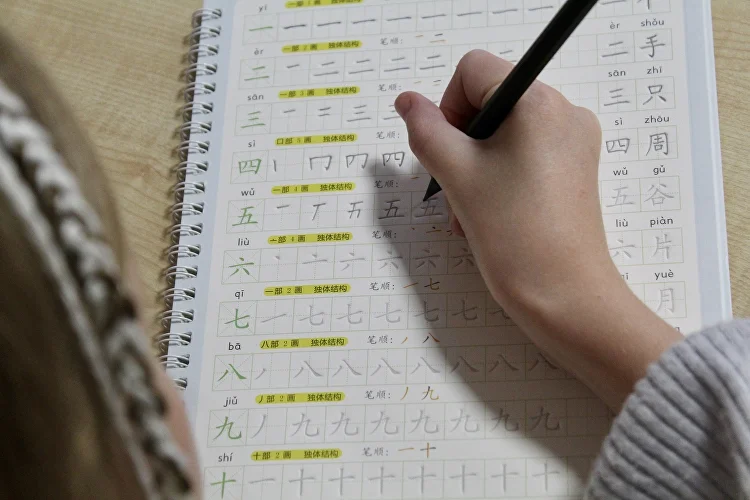 yī 一部 1 画 独体结构
一 一 一 一 一
èr 一部 2 画 独体结构 笔顺: 一 二 èr shǒu
二 一 二 二 二 二 二手
sān 一部 3 画 独体结构 笔顺: sān zhī
三 一 二 三 三 三只
sì 口部 5 画 独体结构 笔顺: sì zhōu
四 丨 冂 四 四周
wǔ 一部 4 画 独体结构 笔顺: wǔ gǔ
五 一 五 五 五谷
liù 亠部 4 画 独体结构 笔顺: liù piàn
六 丶 亠 六 六 六 六 六片
qī 一部 2 画 独体结构 笔顺: 一 七 yuè
七 一 七 七 七 七 七 月
bā 八部 2 画 独体结构 笔顺: 丿 八
八 丿 八 八 八 八 八 八 八
jiǔ 丿部 2 画 独体结构 笔顺: 丿 九
九 丿 九 九 九 九 九 九 九
shí 十部 2 画 独体结构 笔顺: 一 十
十 一 十 十 十 十 十 十 十